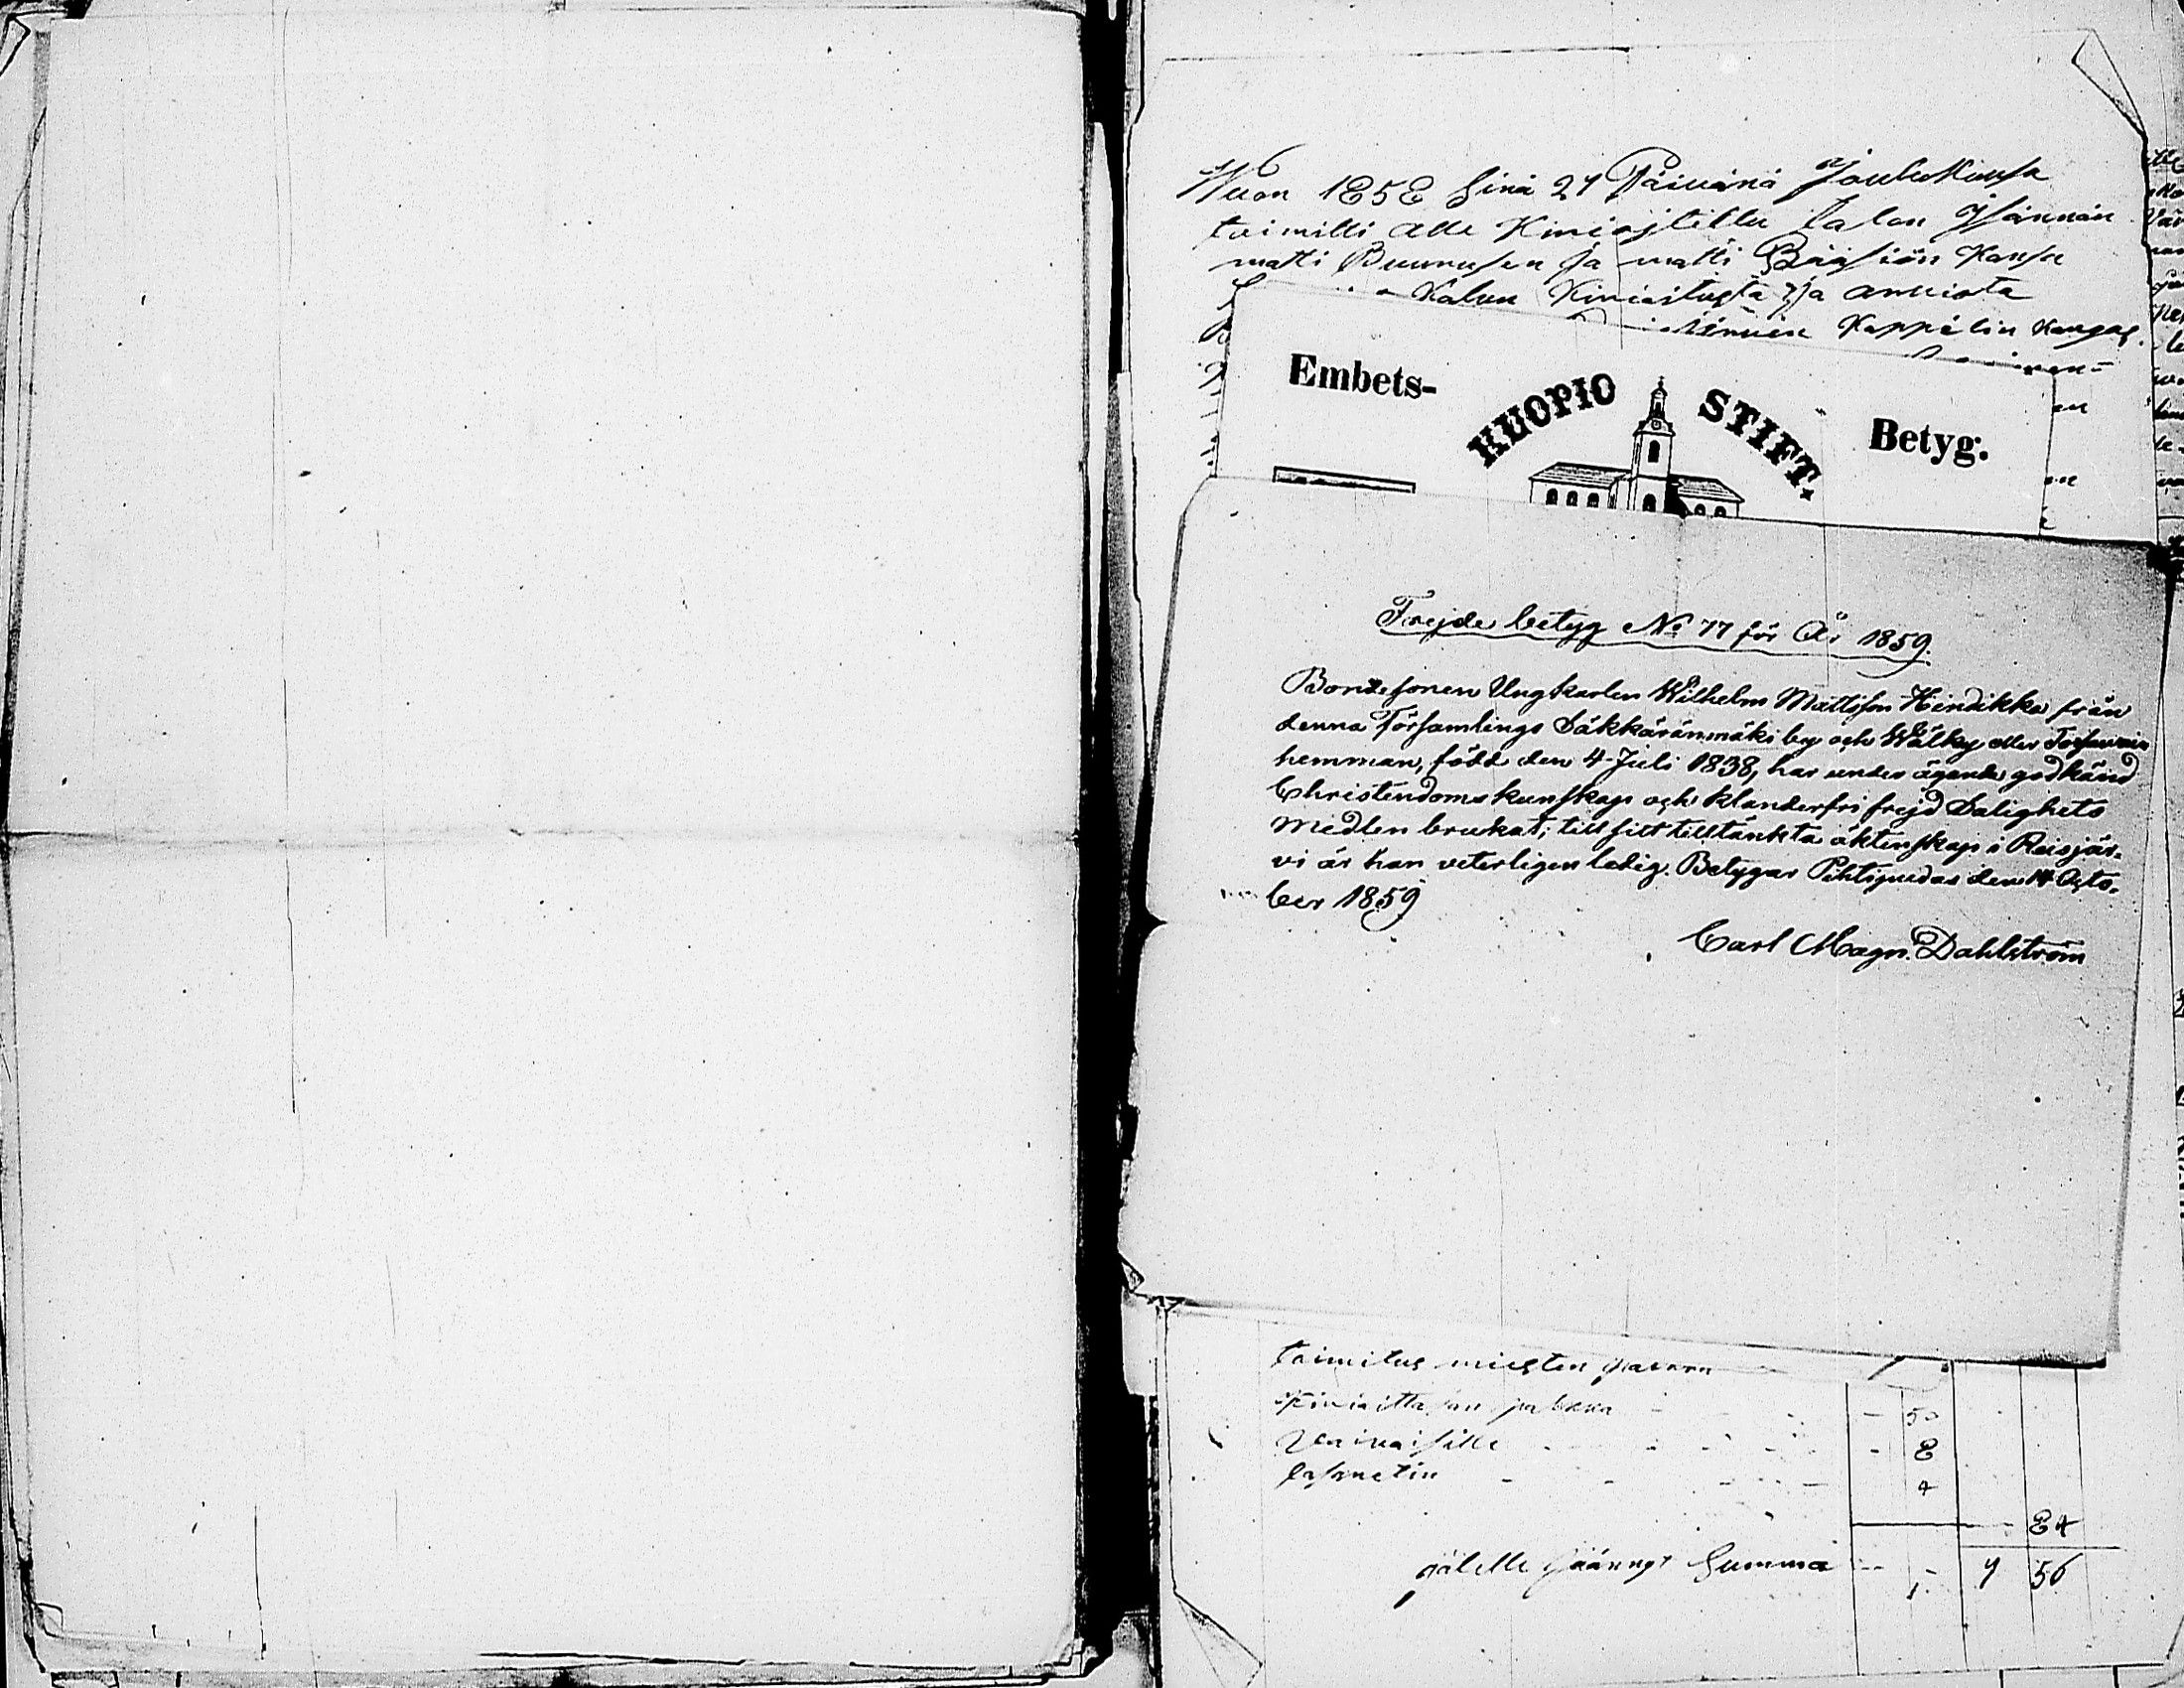 Wuon 1858 Sinä 27 Päivänä JouluKuusa
toimitti alle Kiriojtettu talon Jsännän
matti Buurusen ja matti Pääsiön Kansa
Kalun Kirioitusta ja arviota
Kappelin Kangas
Embets-
KUOPIO STIFT.
Betyg.
Frejde betyg No 77 för År 1859.
Bondesonen Ungkarlen Wilhelm Mattsson Hindikka från
denna Församlings Säkkäränmäki by och Wälky eller
hemman, född den 4 Juli 1838, har under ägande godkänd
Christendoms kunskap och klanderfri frejd Salighets
Medlen brukat; till sitt tilltänkta äktenskap i Reisjär-
vi är han veterligen ledig. Betygar Pihtipudas den 14 Octo-
ber 1859
Carl Magn. Dahlström
toimitus miesten
Kirioittajan palkka - - 50
Vaivaisille - - 8
lasaretin - - 4
84
jälelle jäänyt Summa - - 7 56